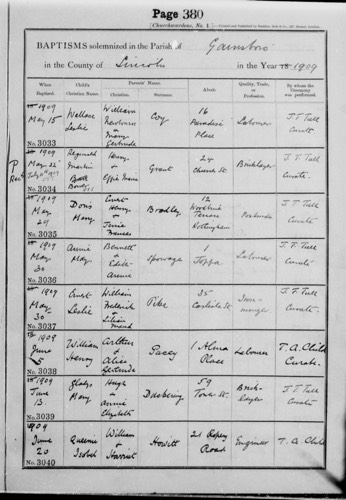 Page 380
[Churchwardens, No. 1.]
BAPTISMS solemnized in the Parish of Gainsboro
in the County of Lincoln in the Year 18 1909
When Baptized. Child's Christian Name. Parents' Name. Abode. Quality, Trade, or Profession. By whom the Ceremony was performed.
Christian. Surname.
1909
May 15
No. 3033
Wallace
Leslie
William
&
Mary
Gertrude
Coy
16
Paradise
Place
Labourer
J. T. Tall
Curate
1909
May 22
No. 3034
Reginald
Martin
Henry
&
Effie
Grantide
24
Church St.
Bricklayer
J. T. Tall
Curate.
1909
May
29
No. 3035
Doris
Mary
Henry
&
Bradley
12
Woodbine
Terrace
Nottingham
Postman
J. T. Tall
Curate
1909
May
30
No. 3036
Annie
May
Bennett
&
Edith
Annie
Spowage
1
Joppa
Labourer
J. T. Tall
Curate
1909
May
30
No. 3037
Leslie
William
&
Lilian
Maud
Pike
35
Carlisle St.
J. T. Tall
Curate
1909
June
5
No. 3038
William
Henry
&
Alice
Gertrude
Pacey
1 Alma
Place
Labourer
T. A. Child
Curate.
1909
June
13
No. 3039
Gladys
Mary
Hugh
&
Annie
Elizabeth
59
Tower St.
J. T. Tall
Curate
1909
June
20
No. 3040
Queenie
Isobel
William
&
Harriet
Howitt
21 Ropery
Road
Engineer
T. A. Child